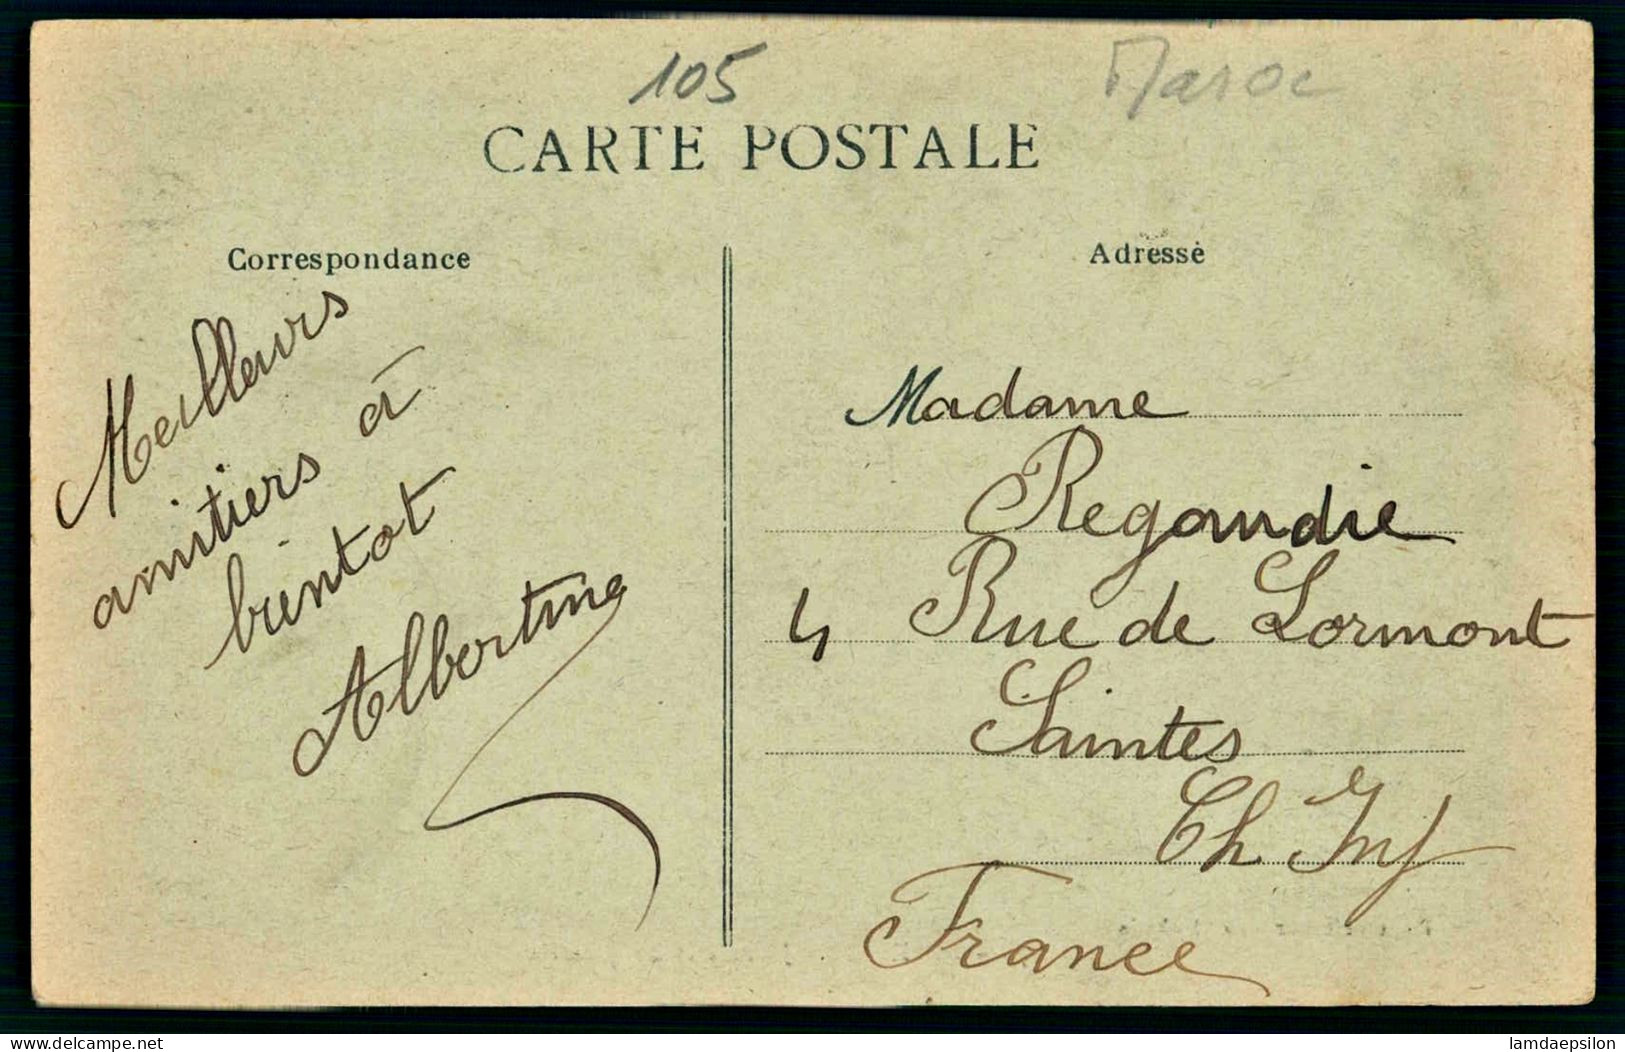 105
Maroc
CARTE POSTALE
Correspondance
Adresse
Meilleurs
amitiers à
bientot
Albertine
Madame
Regaudie
4 Rue de Lormont
Saintes
Ch Inf
France
www.delcampe.net
lamdaepsilon